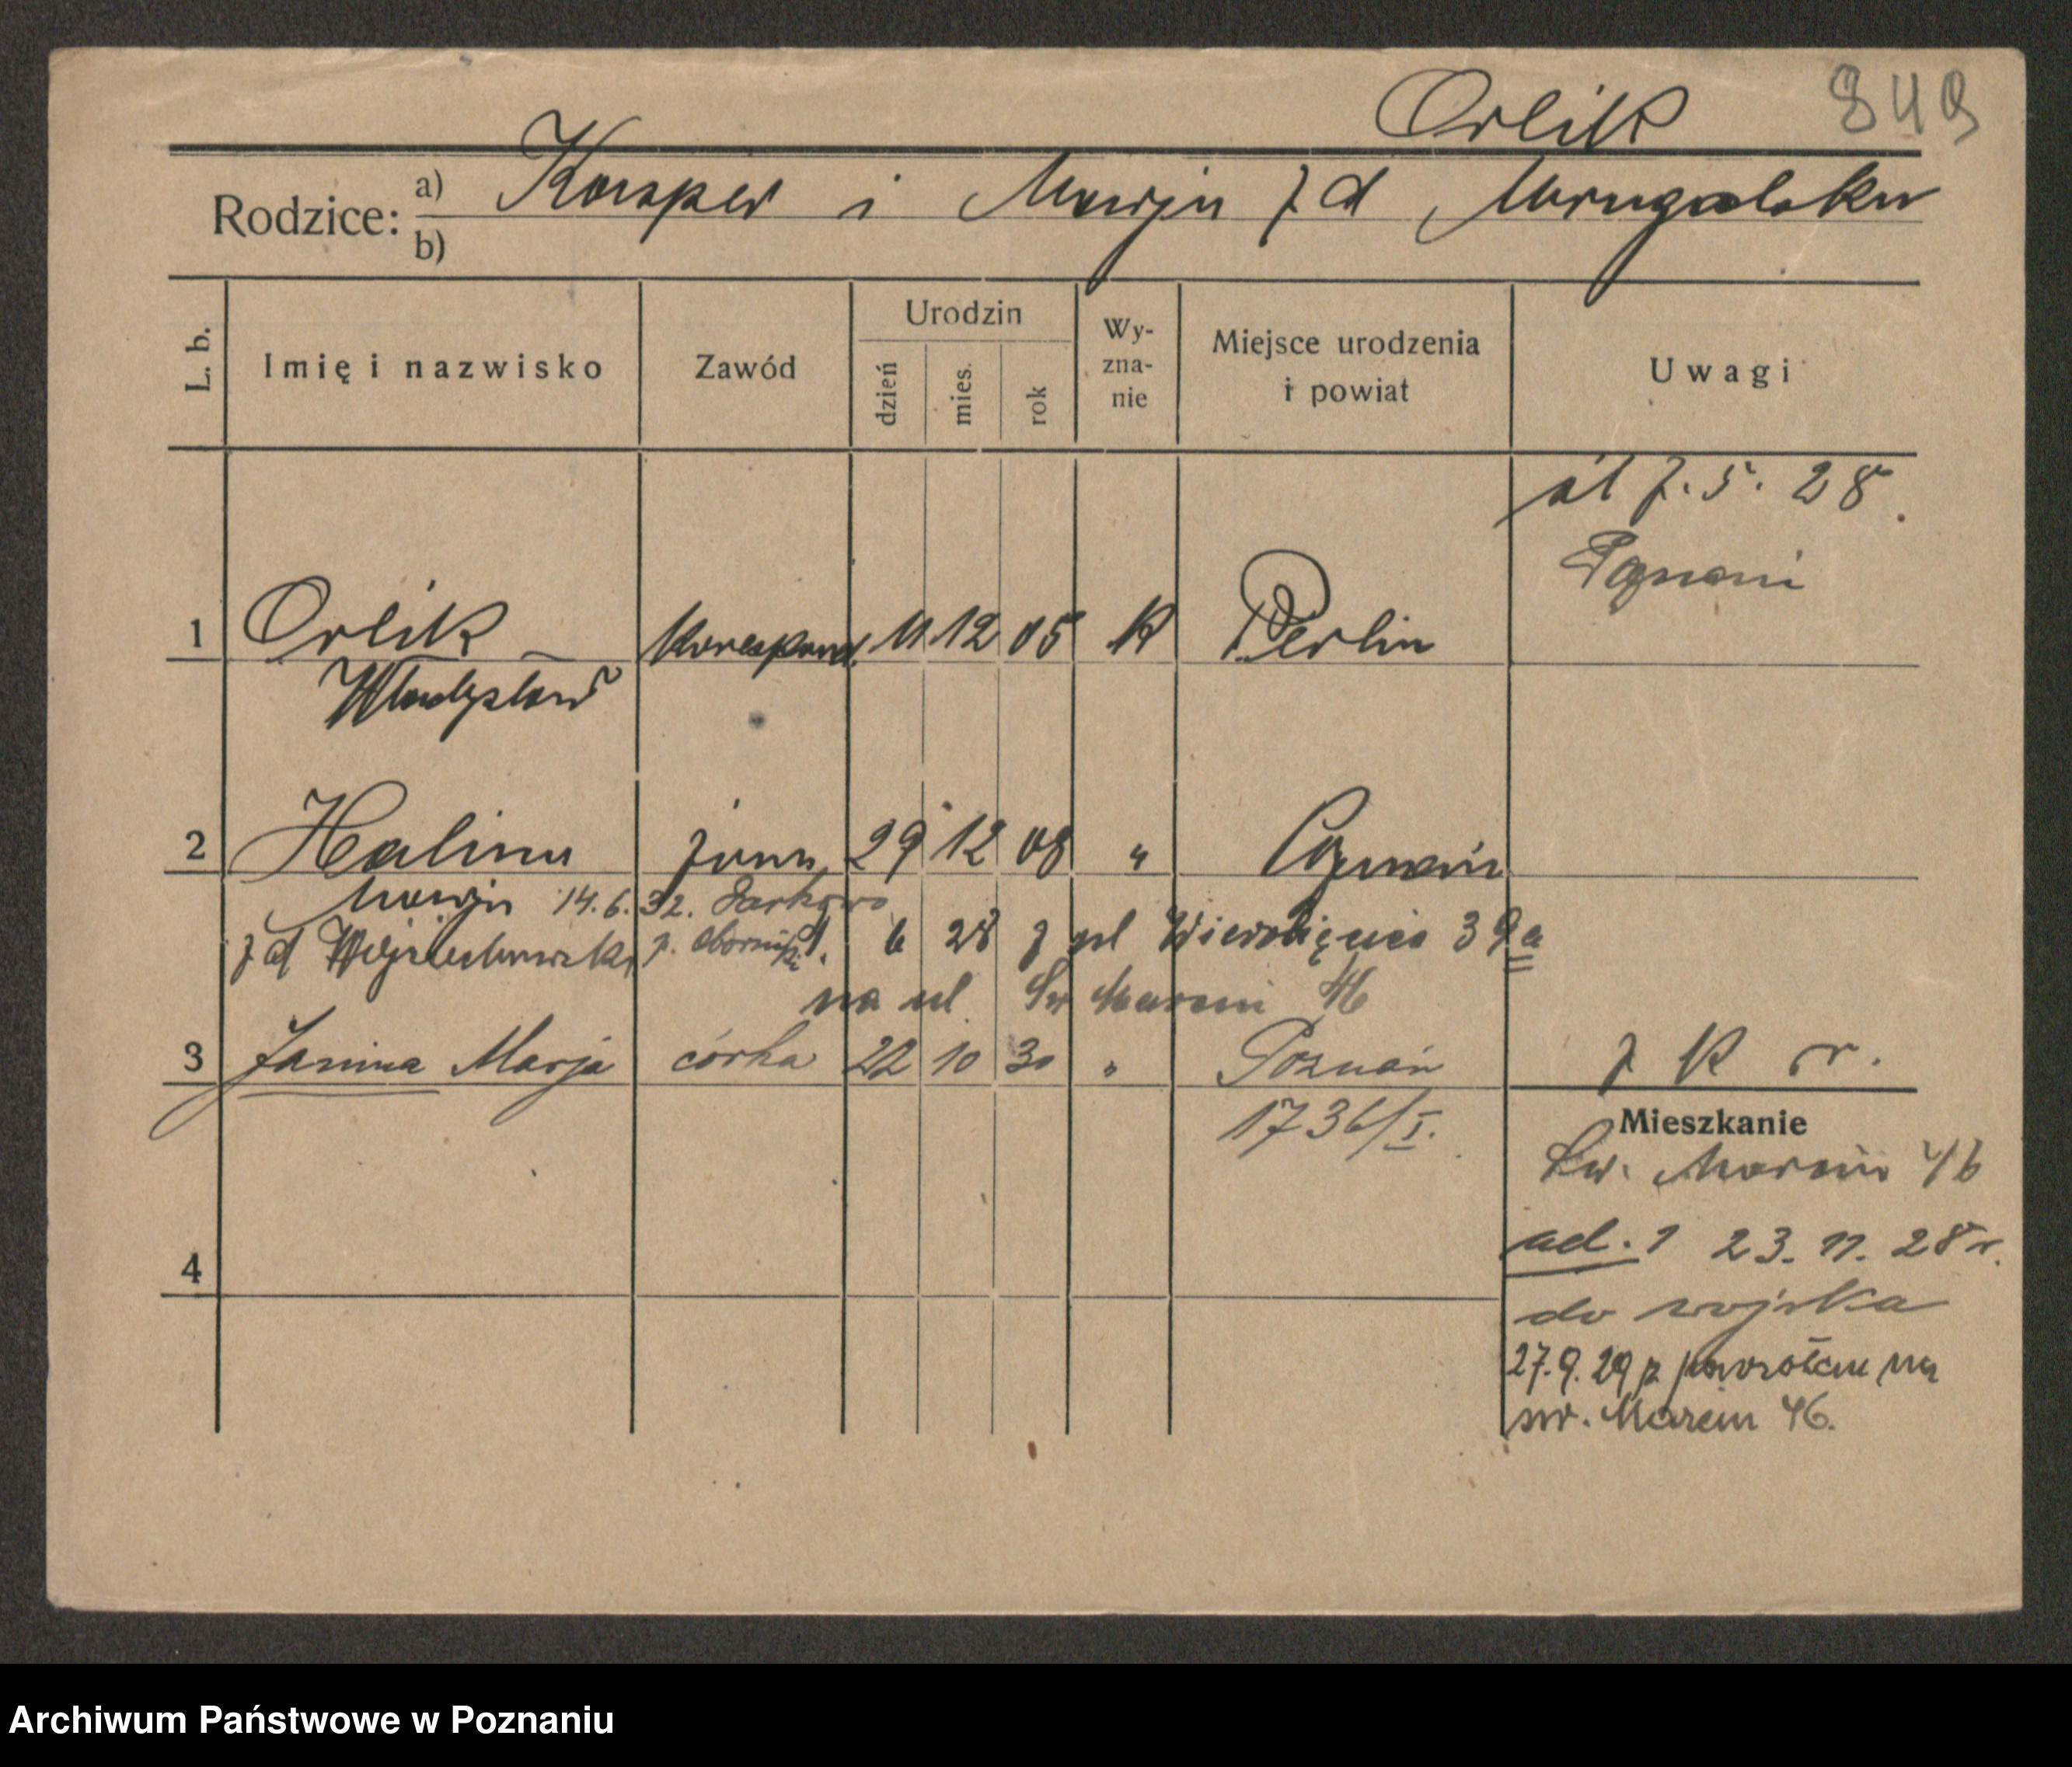 Orlik 849
Rodzice: a) Kasper i Marja z d Mrugalska
b)
L. b. Imię i nazwisko Zawód Urodzin dzień mies. rok Wy-zna-nie Miejsce urodzenia i powiat Uwagi
śl 7. 5. 28.
Poznań
1 Orlik Korespond. 11 12 05 K Berlin
Władysław
2 Halina żona 29 12 08 " Poznań
Marja 14.6.32.
z d Wojciechowska p. Obornik. 6 28 z ul Wierzbięcice 39a
na ul. Św Marcin 46
3 Janina Marja córka 22 10 30 " Poznań z K r.
1736/I.
Mieszkanie
Św. Marcin 46
ad. 1 23. 11. 28 r.
4
do wojska
27.9.29 z powrotem na
św. Marcin 46.
Archiwum Państwowe w Poznaniu